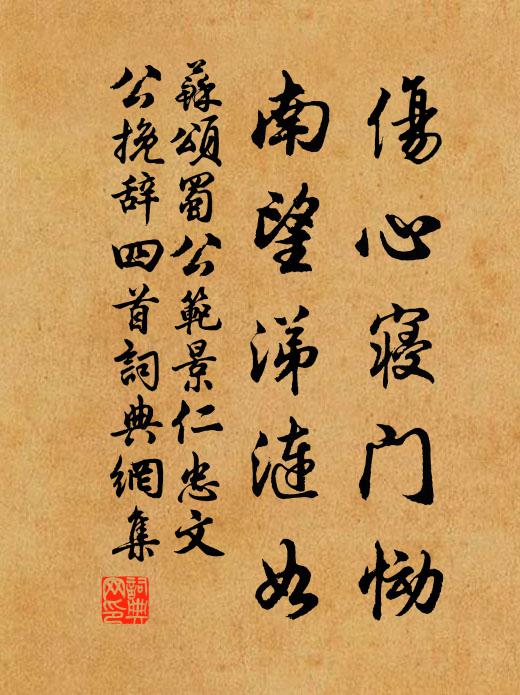 傷心寢門慟
南望涕漣如
蘇頌蜀公範景仁忠文
公挽辞四首詞典網集
詞典网印